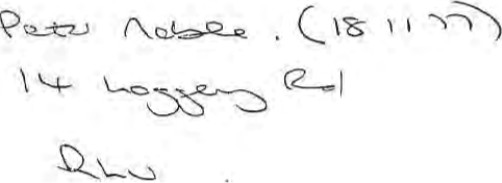 Peter Noble. (18 11 77)
14 Loggery Rd